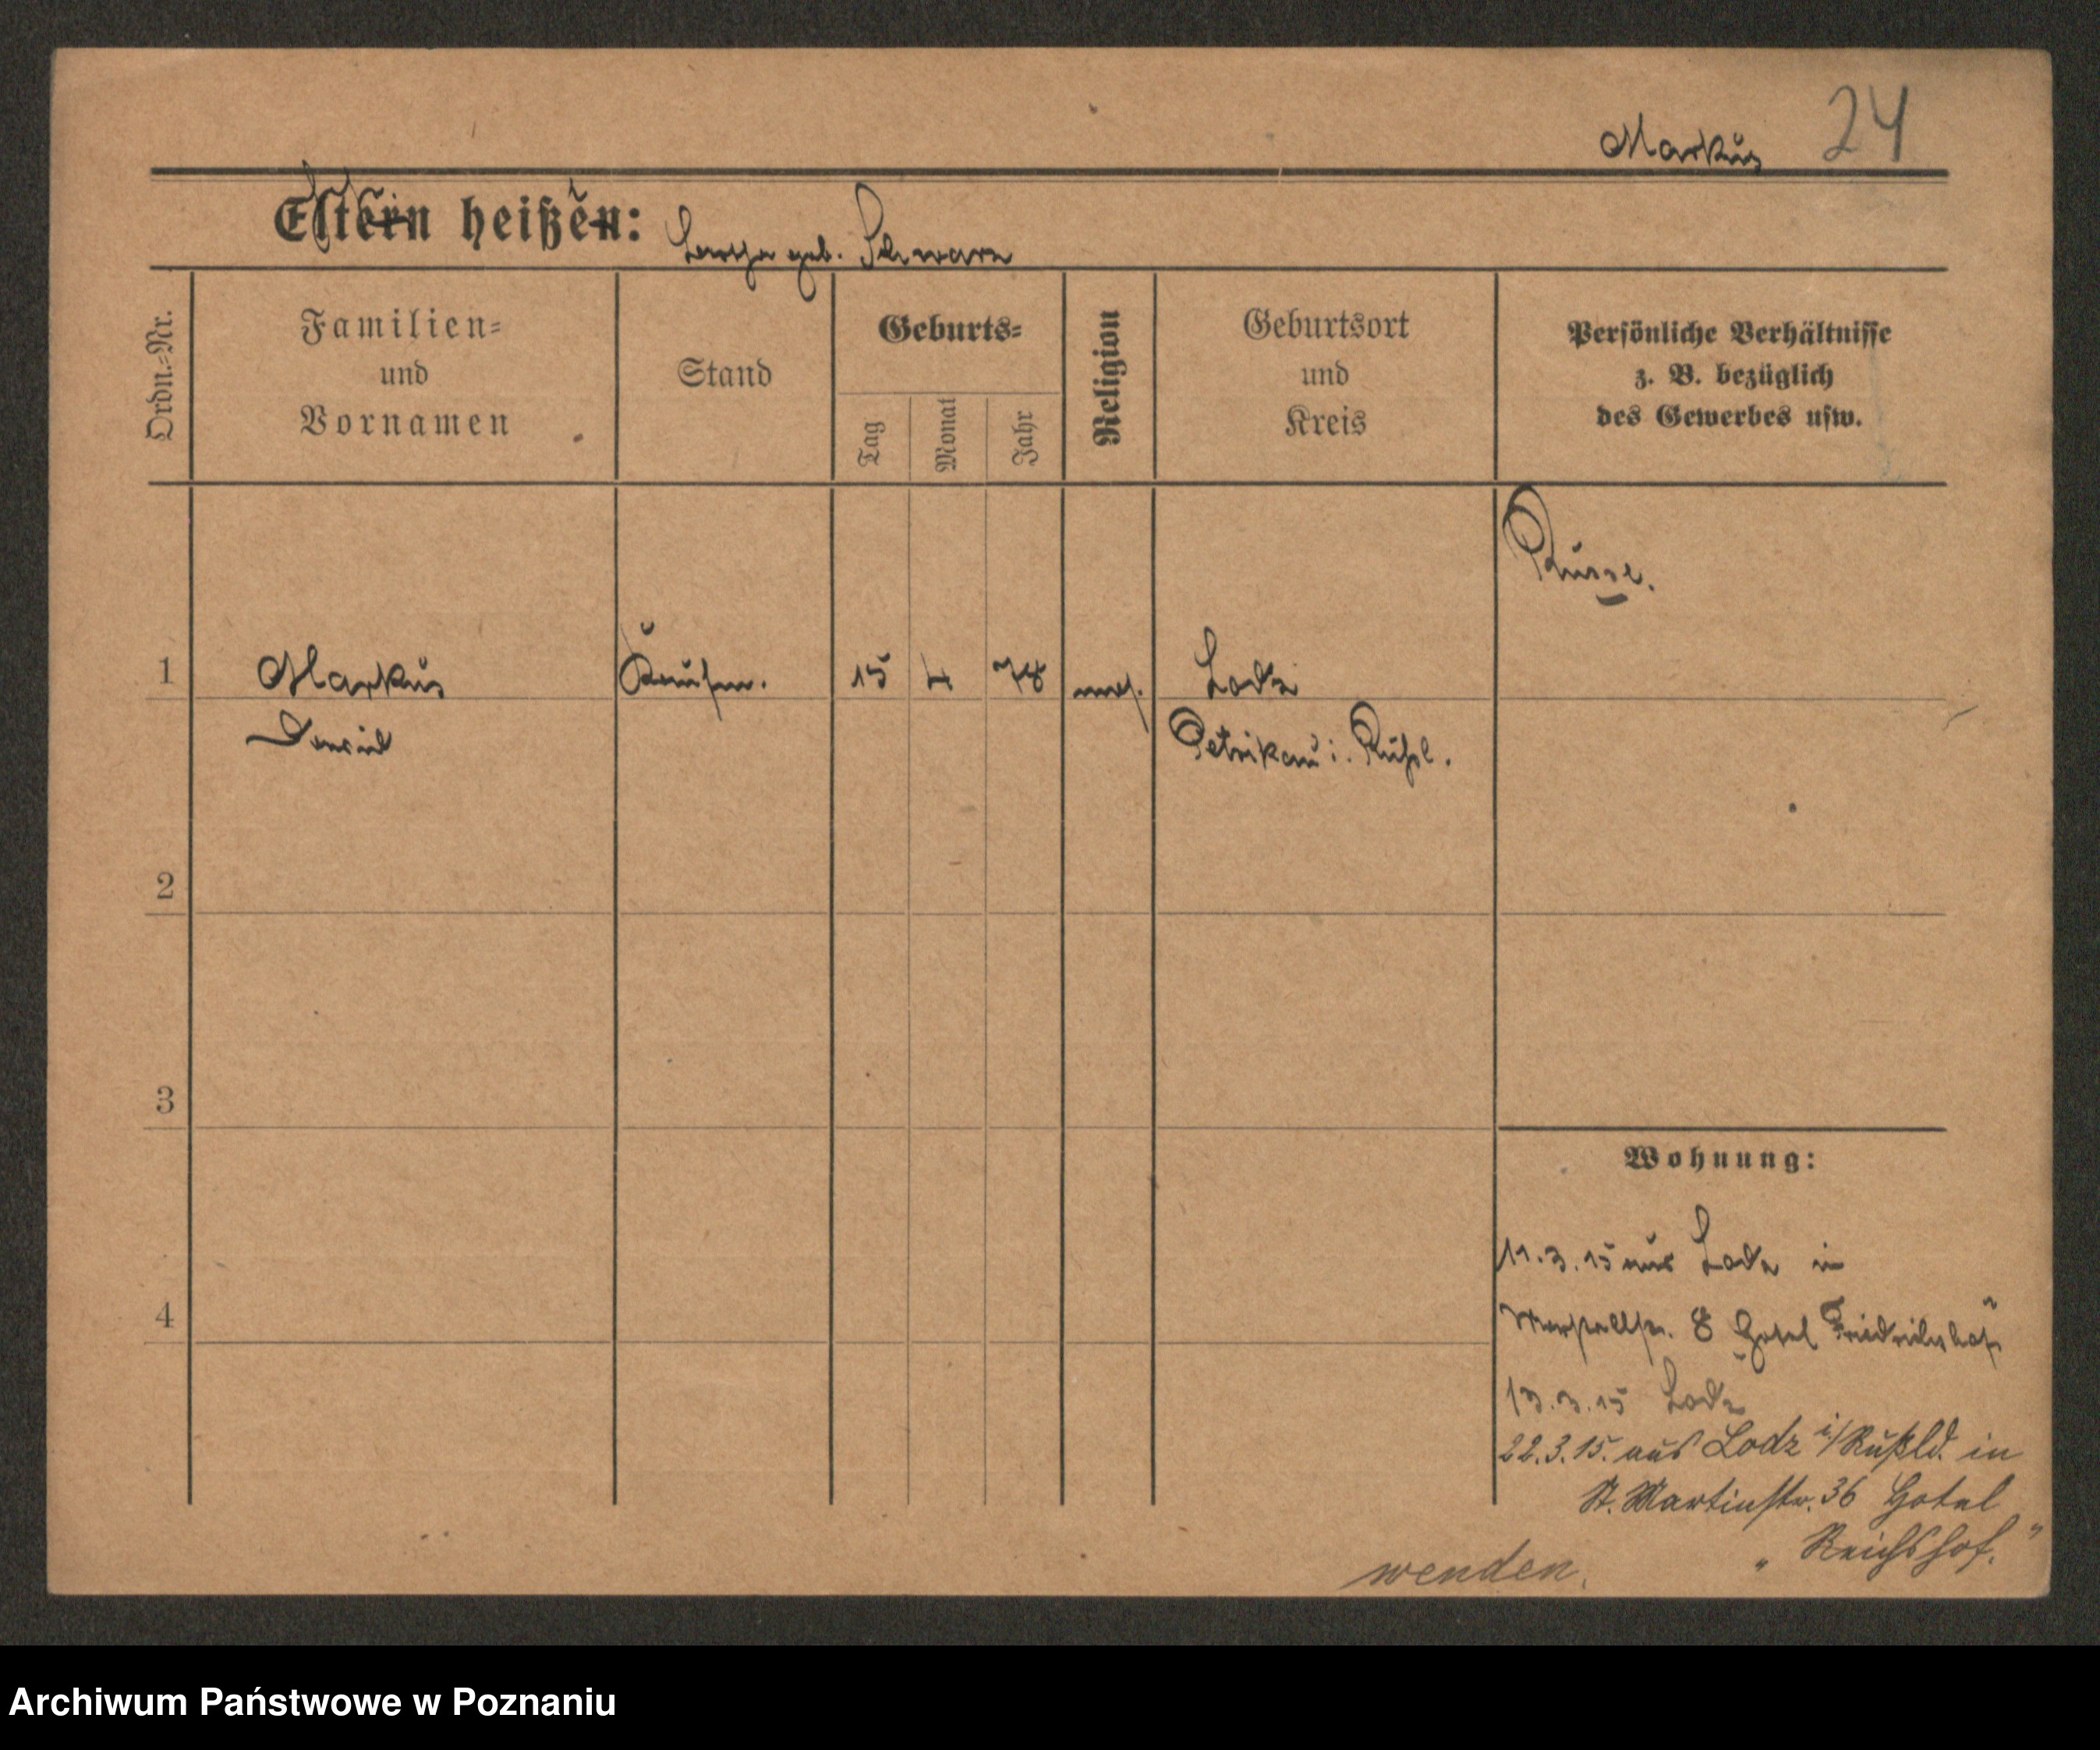 Markus 24
Eltern heißen: geb. Schwarz
Ordn.-Nr.
Familien-
und
Vornamen
Stand
Geburts-
Tag
Monat
Jahr
Religion
Geburtsort
und
Kreis
Persönliche Verhältnisse
z. B. bezüglich
des Gewerbes usw.
Russe.
1 Markus Kaufm. 15 4 78 mos. Lodz
David Petrikau i. Rußl.
2
3
Wohnung:
11.3.15 aus Lodz in
4
8 Hotel Friedrichshof"
13.3.15 Lodz
22.3.15. aus Lodz i/Rußld. in
St. Martinstr. 36 Hotel
„Reichshof."
wenden.
Archiwum Państwowe w Poznaniu